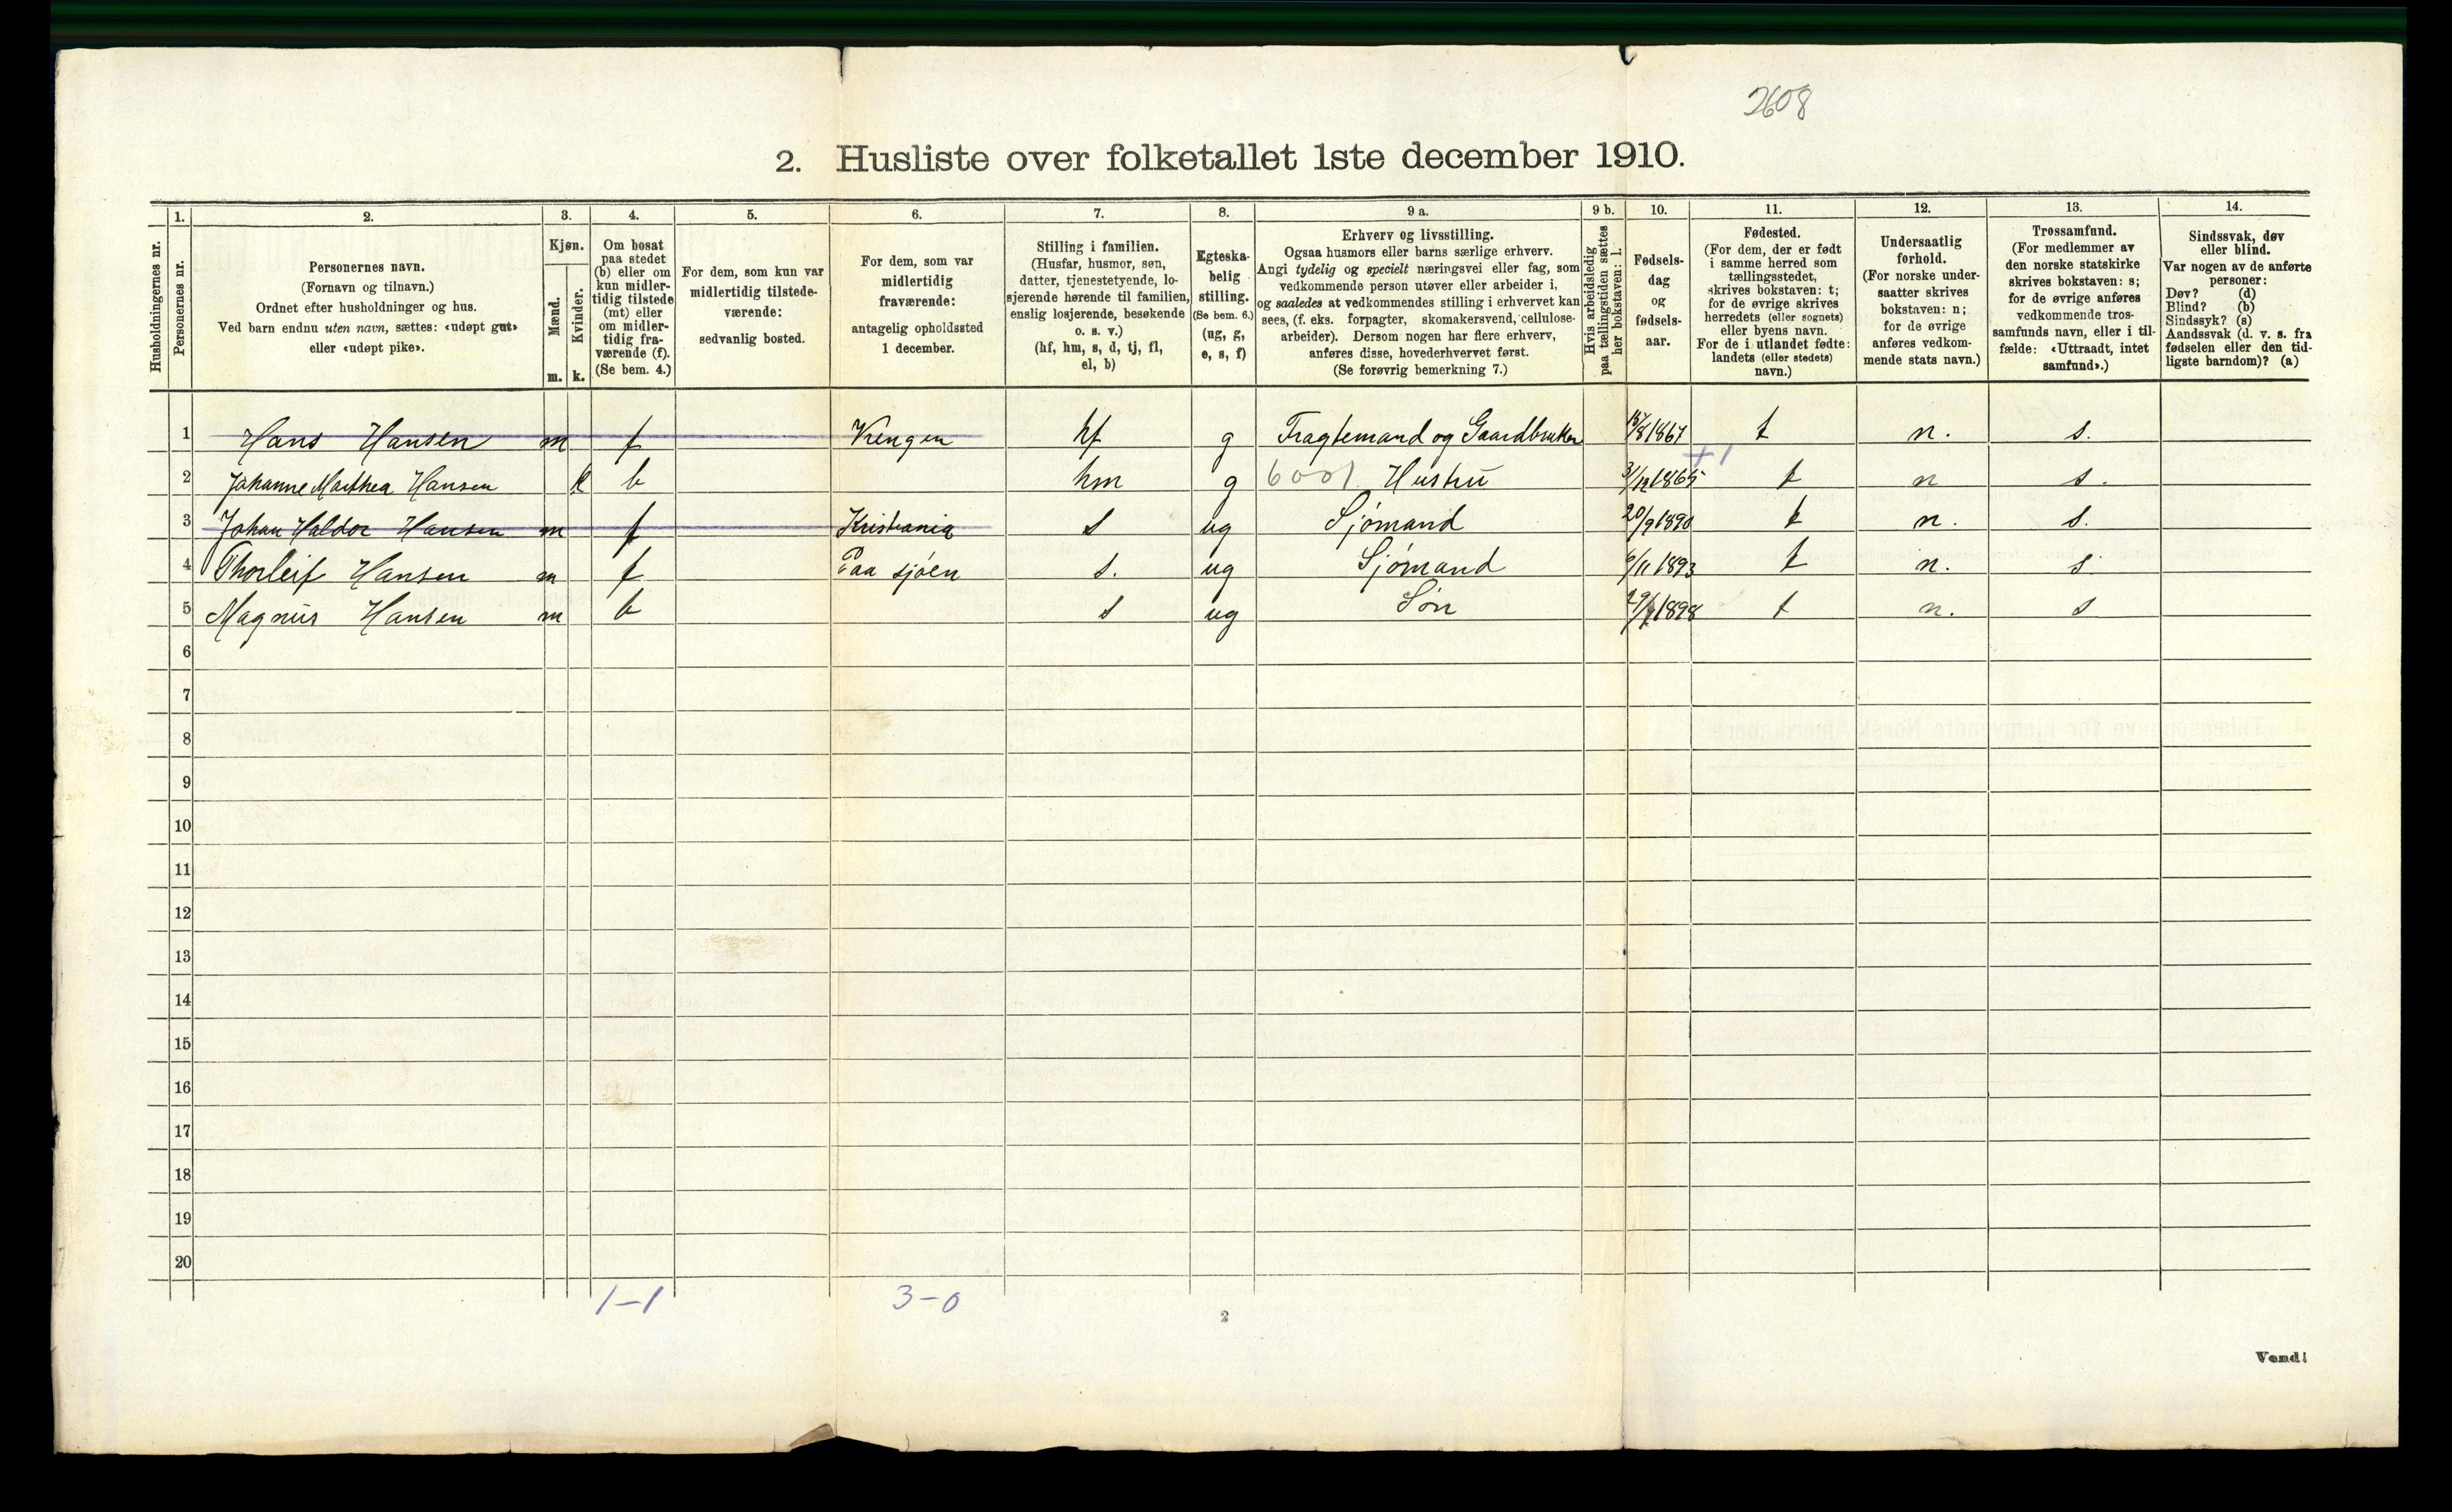 2608
2. Husliste over folketallet 1ste december 1910.
Husholdningernes nr.
1.
Personernes nr.
2.
Personernes navn.
(Fornavn og tilnavn.)
Ordnet efter husholdninger og hus.
Ved barn endnu uten navn, sættes: «udøpt gut»
eller «udøpt pike».
3.
Kjøn.
Mænd.
Kvinder.
m. k.
4.
Om bosat
paa stedet
(b) eller om
kun midler-
tidig tilstede
(mt) eller
om midler-
tidig fra-
værende (f).
(Se bem. 4.)
5.
For dem, som kun var
midlertidig tilstede-
værende:
sedvanlig bosted.
6.
For dem, som var
midlertidig
fraværende:
antagelig opholdssted
1 december.
7.
Stilling i familien.
(Husfar, husmor, søn,
datter, tjenestetyende, lo-
sjerende hørende til familien,
enslig losjerende, besøkende
o. s. v.)
(hf, hm, s, d, tj, fl,
el, b)
8.
Egteska-
belig
stilling.
(Se bem. 6.)
(ug, g,
e, s, f)
9 a.
Erhverv og livsstilling.
Ogsaa husmors eller barns særlige erhverv.
Angi tydelig og specielt næringsvei eller fag, som
vedkommende person utøver eller arbeider i,
og saaledes at vedkommendes stilling i erhvervet kan
sees, (f. eks. forpagter, skomakersvend, cellulose-
arbeider). Dersom nogen har flere erhverv,
anføres disse, hovederhvervet først.
(Se forøvrig bemerkning 7.)
9 b.
Hvis arbeidsledig
paa tællingstiden sættes
her bokstaven: l.
10.
Fødsels-
dag
og
fødsels-
aar.
11.
Fødested.
(For dem, der er født
i samme herred som
tællingsstedet,
skrives bokstaven: t;
for de øvrige skrives
herredets (eller sognets)
eller byens navn.
For de i utlandet fødte:
landets (eller stedets)
navn.)
12.
Undersaatlig
forhold.
(For norske under-
saatter skrives
bokstaven: n;
for de øvrige
anføres vedkom-
mende stats navn.)
13.
Trossamfund.
(For medlemmer av
den norske statskirke
skrives bokstaven: s;
for de øvrige anføres
vedkommende tros-
samfunds navn, eller i til-
fælde: «Uttraadt, intet
samfund».)
14.
Sindssvak, døv
eller blind.
Var nogen av de anførte
personer:
Døv? (d)
Blind? (b)
Sindssyk? (s)
Aandssvak (d. v. s. fra
fødselen eller den tid-
ligste barndom)? (a)
1 Hans Hansen m f hf g Fragtemand og Gaardbruker 15/8 1867 t n. s.
+1
2 Johanne Marthea Hansen k b hm g 6001 Hustru 31/12 1865 t n s.
3 Johan Haldor Hansen m f Kristiania s ug Sjømand 20/9 1890 t n. s.
4 Thorleif Hansen m f Paa sjøen s. ug Sjømand 6/11 1893 t n. s.
5 Magnus Hansen m b s ug Søn 1898 t n. s
6
7
8
9
10
11
12
13
14
15
16
17
18
19
20
1-1 3-0
2
Vend!